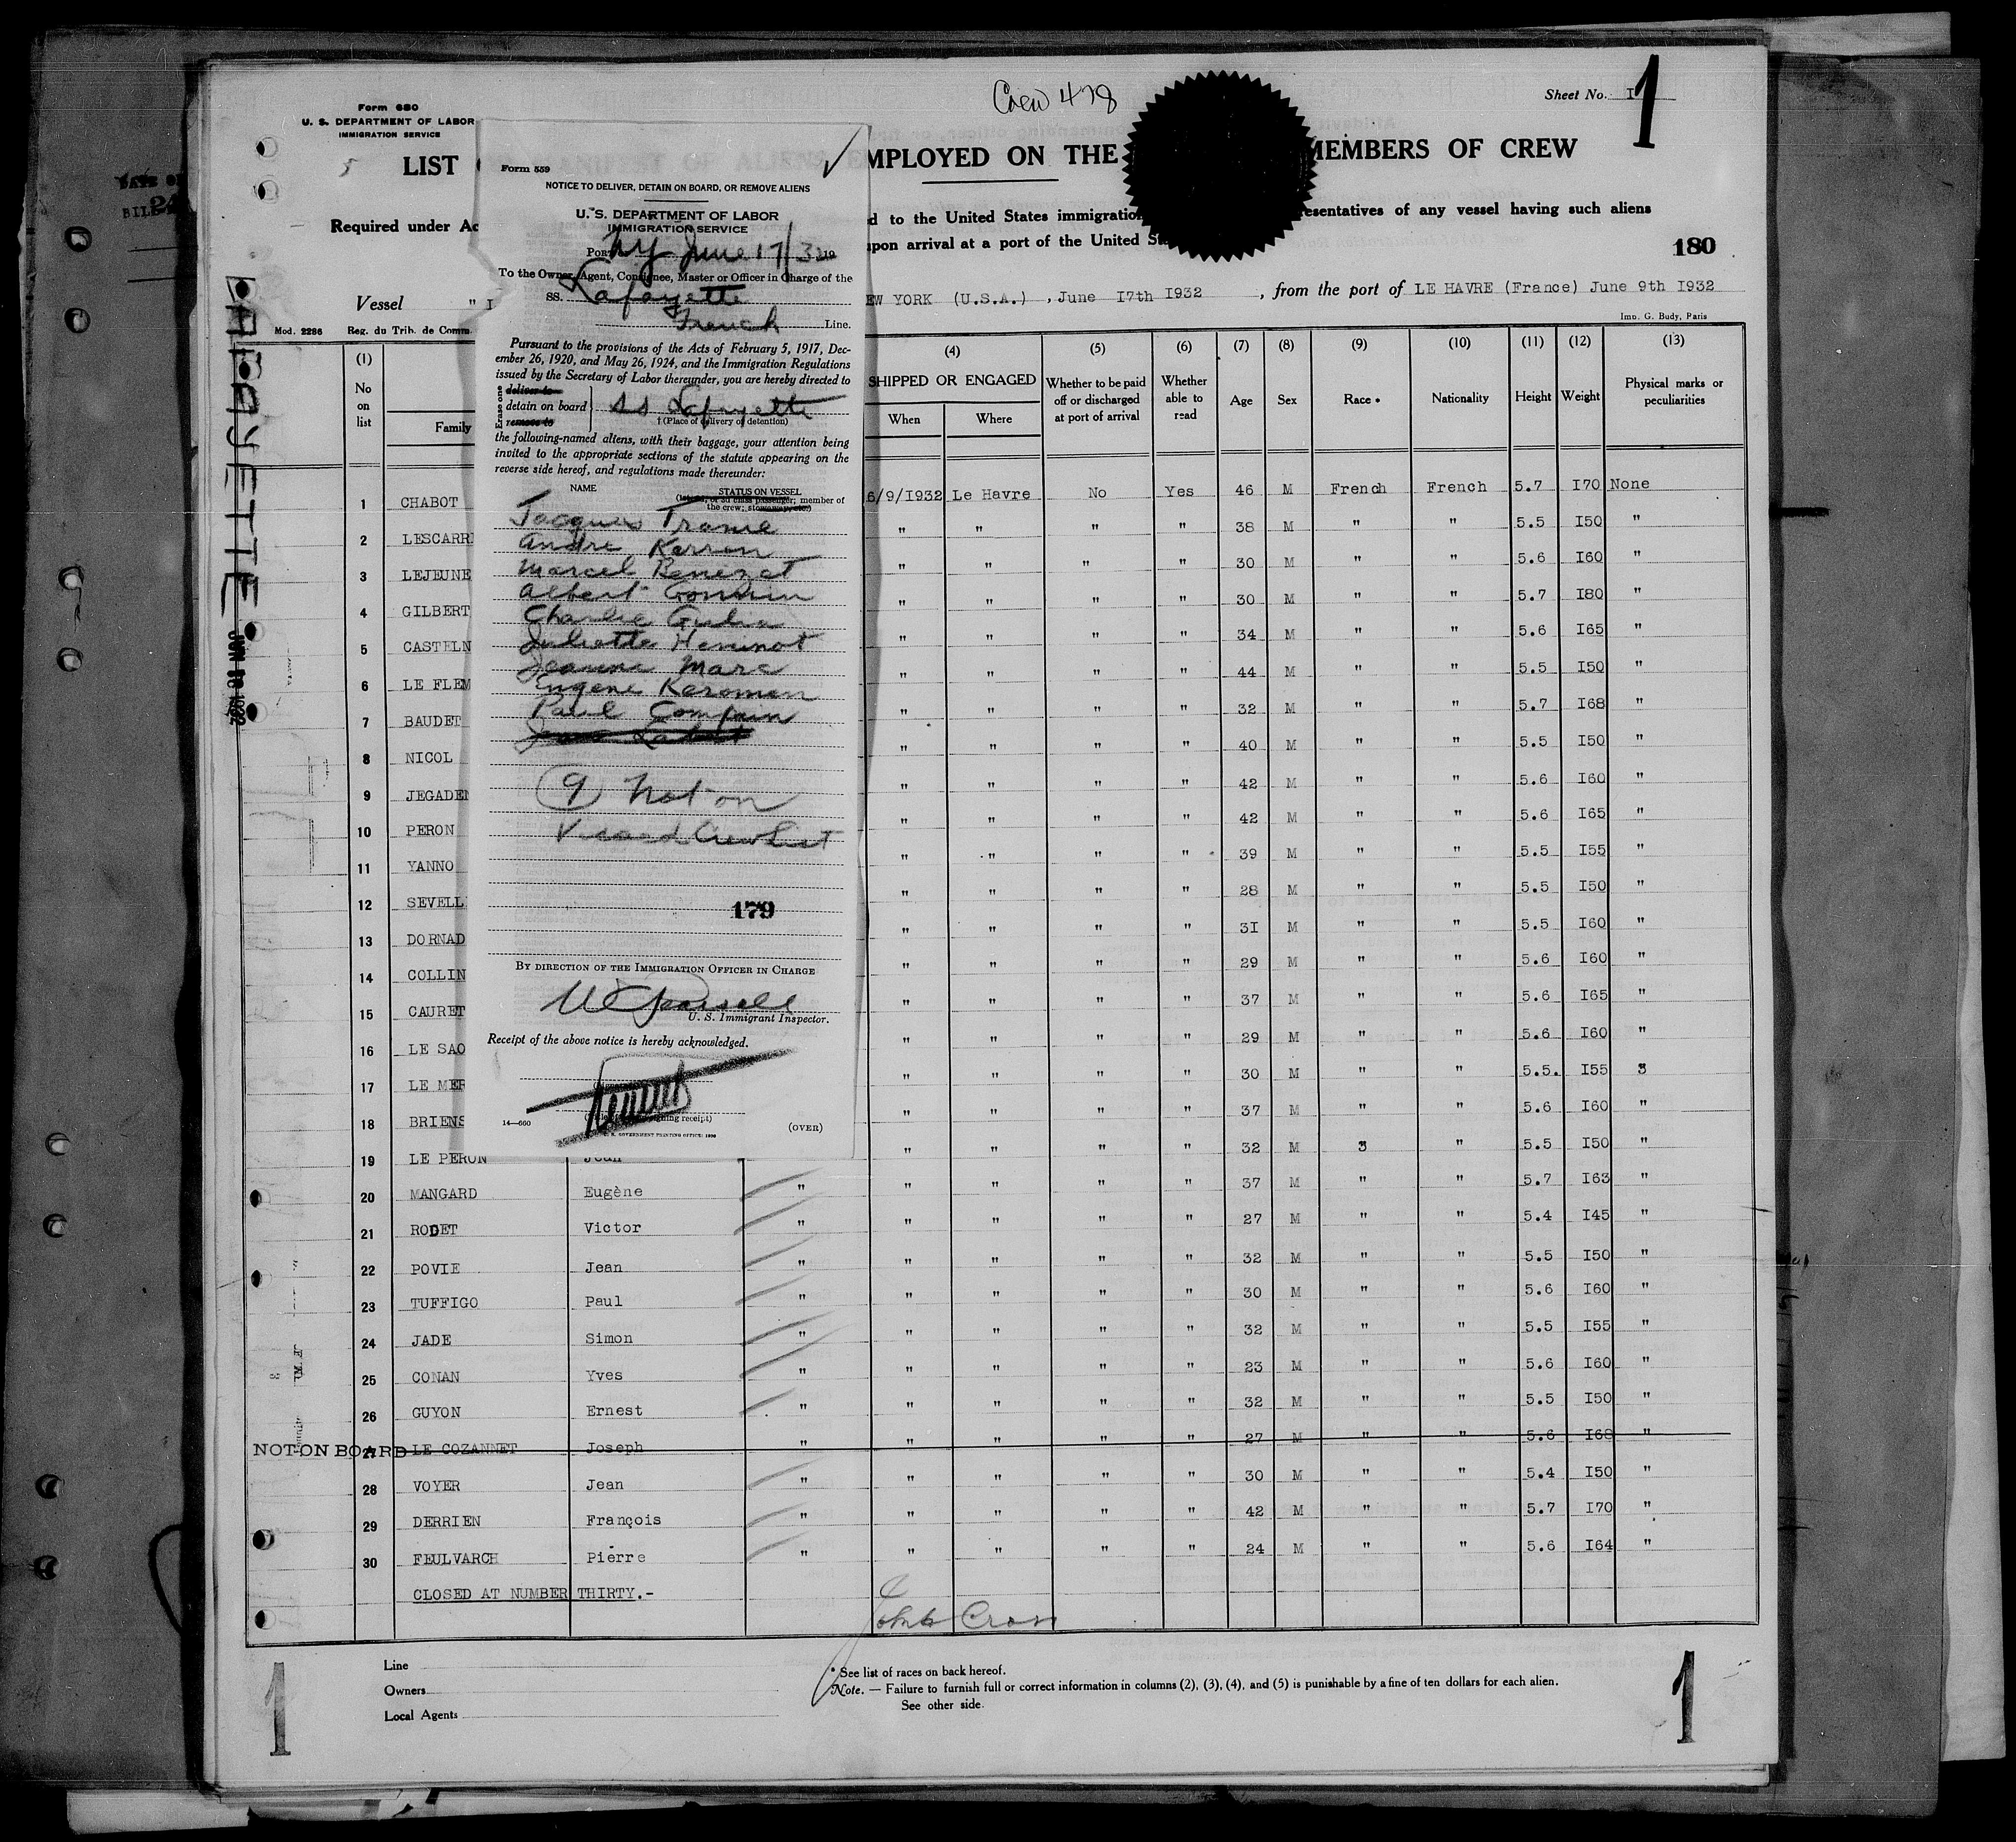 Crew 478
Sheet No. I
1
Form 680
U. S. DEPARTMENT OF LABOR
IMMIGRATION SERVICE
5
LIST MPLOYED ON THE MEMBERS OF CREW
Required under Ac d to the United States immigration resentatives of any vessel having such aliens
upon arrival at a port of the United St
180
Vessel " EW YORK (U.S.A.) , June I7th I932 , from the port of LE HAVRE (France) June 9th I932
Mod. 2286 Reg. du Trib. de Comm. Imp. G. Budy, Paris
LAFAYETTE
JUN 18 1932
Form 559
NOTICE TO DELIVER, DETAIN ON BOARD, OR REMOVE ALIENS
U. S. DEPARTMENT OF LABOR
IMMIGRATION SERVICE
Port NY June 17/32 19
To the Owner, Agent, Consignee, Master or Officer in Charge of the
SS. Lafayette
French Line.
Pursuant to the provisions of the Acts of February 5, 1917, Dec-
ember 26, 1920, and May 26, 1924, and the Immigration Regulations
issued by the Secretary of Labor thereunder, you are hereby directed to
Erase one
deliver to
detain on board SS Lafayette
remove to † (Place of delivery of detention)
the following-named aliens, with their baggage, your attention being
invited to the appropriate sections of the statute appearing on the
reverse side hereof, and regulations made thereunder:
NAME STATUS ON VESSEL
class passenger; member of
the crew;
Jacques Trame
Andre Kerren
Marcel Benezat
Albert
Charlie
Juliette Heninot
Jeanne Marc
Eugene Keromen
Paul Compain
9 Not on
Visaed Crew List
179
By direction of the Immigration Officer in Charge
U. S. Immigrant Inspector.
Receipt of the above notice is hereby acknowledged.
ning receipt)
14—660 (OVER)
GOVERNMENT PRINTING OFFICE: 1930
(1) (4) (5) (6) (7) (8) (9) (10) (11) (12) (13)
No on list Family SHIPPED OR ENGAGED When Where Whether to be paid off or discharged at port of arrival Whether able to read Age Sex Race * Nationality Height Weight Physical marks or peculiarities
1 CHABOT 6/9/1932 Le Havre No Yes 46 M French French 5.7 I70 None
2 LESCARR " " " " 38 M " " 5.5 I50 "
3 LEJEUNE " " " " 30 M " " 5.6 I60 "
4 GILBERT " " " " 30 M " " 5.7 I80 "
5 CASTELN " " " " 34 M " " 5.6 I65 "
6 LE FLEM " " " " 44 M " " 5.5 I50 "
7 BAUDET " " " " 32 M " " 5.7 I68 "
8 NICOL " " " " 40 M " " 5.5 I50 "
9 JEGADEN " " " " 42 M " " 5.6 I60 "
10 PERON " " " " 42 M " " 5.6 I65 "
11 YANNO " " " " 39 M " " 5.5 I55 "
12 SEVELL " " " " 28 M " " 5.5 I50 "
13 DORNAD " " " " 3I M " " 5.5 I60 "
14 COLLIN " " " " 29 M " " 5.6 I60 "
15 CAURET " " " " 37 M " " 5.6 I65 "
16 LE SAO " " " " 29 M " " 5.6 I60 "
17 LE MER " " " " 30 M " " 5.5. I55 "
18 BRIENS " " " " 37 M " " 5.6 I60 "
19 LE PERON Jean " " " " 32 M " " 5.5 I50 "
20 MANGARD Eugène " " " " " 37 M " " 5.7 I63 "
21 RODET Victor " " " " " 27 M " " 5.4 I45 "
22 POVIE Jean " " " " " 32 M " " 5.5 I50 "
23 TUFFIGO Paul " " " " " 30 M " " 5.6 I60 "
24 JADE Simon " " " " " 32 M " " 5.5 I55 "
25 CONAN Yves " " " " " 23 M " " 5.6 I60 "
26 GUYON Ernest " " " " " 32 M " " 5.5 I50 "
NOT ON BOARD 27 LE COZANNET Joseph " " " " " 27 M " " 5.6 I68 "
28 VOYER Jean " " " " " 30 M " " 5.4 I50 "
29 DERRIEN François " " " " " 42 M " " 5.7 I70 "
30 FEULVARCH Pierre " " " " " 24 M " " 5.6 I64 "
CLOSED AT NUMBER THIRTY.-
Line
Owners
Local Agents
* See list of races on back hereof.
Note. — Failure to furnish full or correct information in columns (2), (3), (4), and (5) is punishable by a fine of ten dollars for each alien.
See other side.
1
1